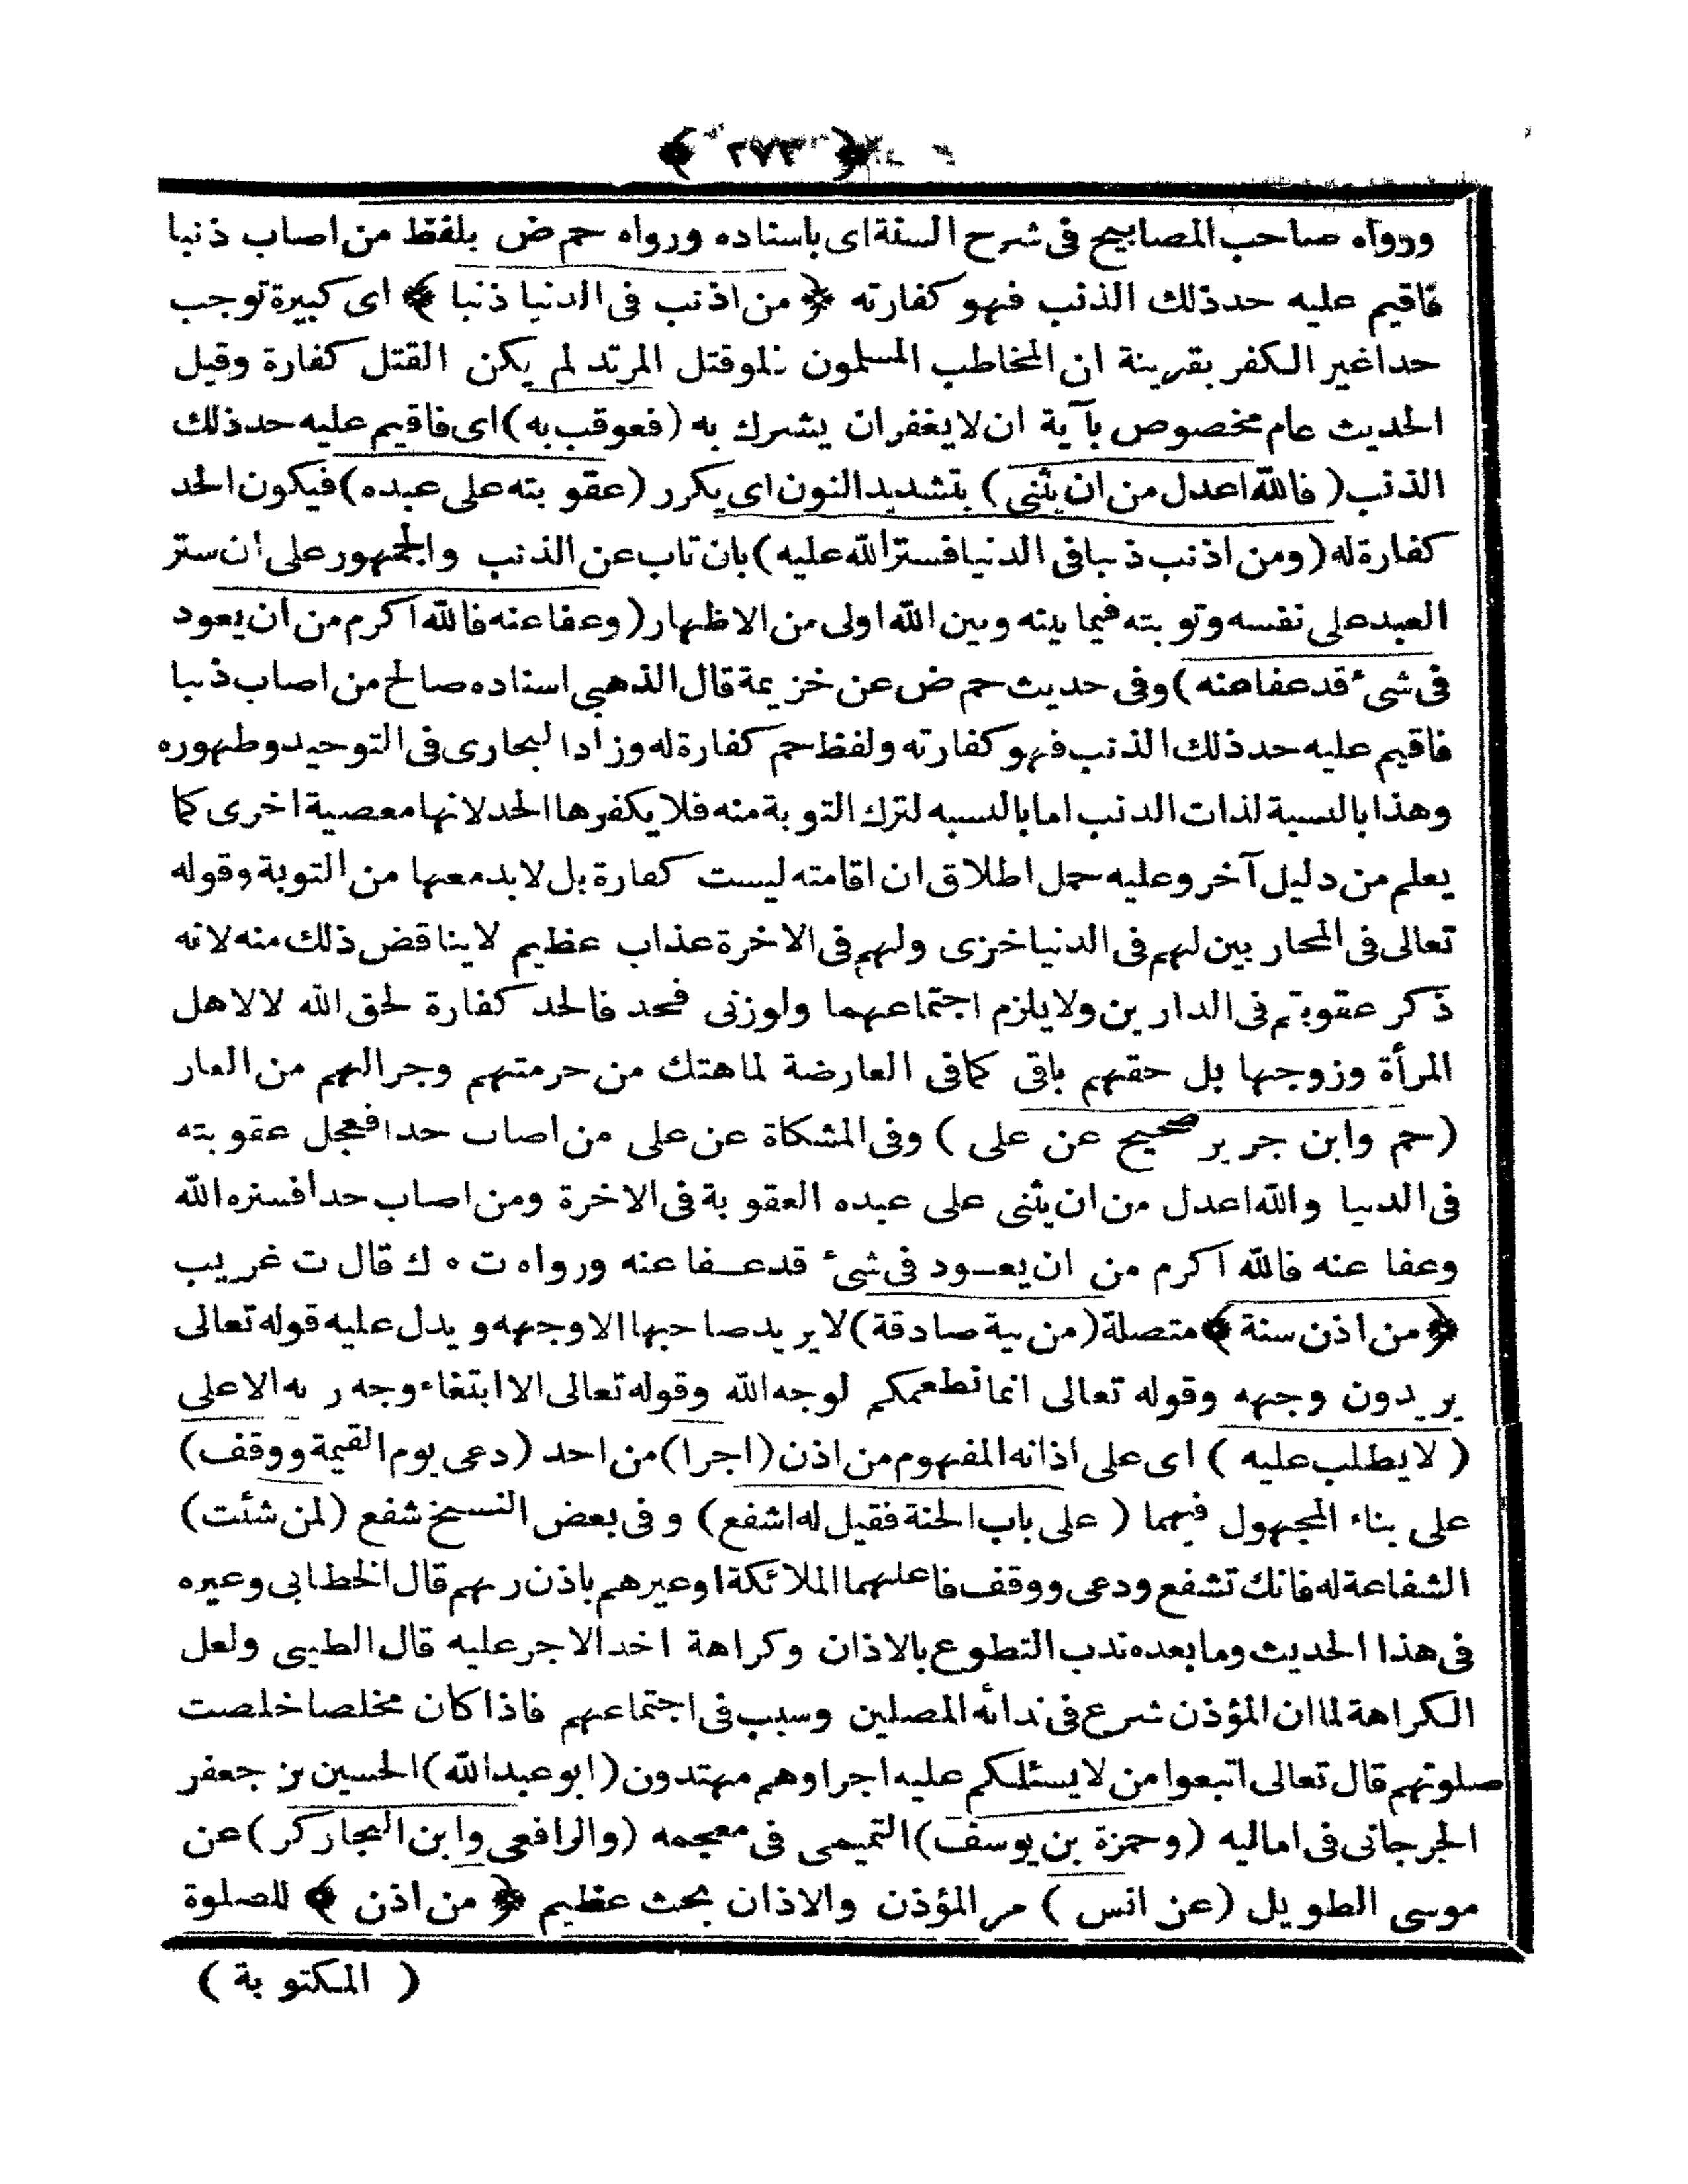 ﴿ ٢٧٣ ﴾
ورواه صاحب المصابيح فى شرح السنة اى باسناده ورواه حم ض بلفظ من اصاب ذنبا
فاقيم عليه حد ذلك الذنب فهو كفارته ﴿ من اذنب فى الدنيا ذنبا ﴾ اى كبيرة توجب
حدا غير الكفر بقرينة ان المخاطب المسلمون فلو قتل المرتد لم يكن القتل كفارة وقيل
الحديث عام مخصوص بآية ان لا يغفر ان يشرك به (فعوقب به) اى فاقيم عليه حد ذلك
الذنب (فالله اعدل من ان يثنى) بتشديد النون اى يكرر (عقوبته على عبده) فيكون الحد
كفارة له (ومن اذنب ذنبا فى الدنيا فستر الله عليه) بان تاب عن الذنب والجمهور على ان ستر
العبد على نفسه وتوبته فيما بينه وبين الله اولى من الاظهار (وعفا عنه فالله اكرم من ان يعود
فى شىء قد عفا عنه) وفى حديث حم ض عن خزيمة قال الذهبى اسناده صالح من اصاب ذنبا
فاقيم عليه حد ذلك الذنب فهو كفارته ولفظ حم كفارة له وزاد البخارى فى التوحيد وطهوره
وهذا بالنسبة لذات الذنب اما بالنسبه لترك التوبة منه فلا يكفرها الحد لانها معصية اخرى كما
يعلم من دليل آخر وعليه حمل اطلاق ان اقامته ليست كفارة بل لا بد معها من التوبة وقوله
تعالى فى المحاربين لهم فى الدنيا خزى ولهم فى الاخرة عذاب عظيم لا يناقض ذلك منه لانه
ذكر عقوبتهم فى الدارين ولا يلزم اجتماعهما ولو زنى فحد فالحد كفارة لحق الله لا لاهل
المرأة وزوجها بل حقهم باقى كما فى العارضة لما هتك من حرمتهم وجر اليهم من العار
(حم وابن جرير صحيح عن على) وفى المشكاة عن على من اصاب حدا فعجل عقوبته
فى الدنيا والله اعدل من ان يثنى على عبده العقوبة فى الاخرة ومن اصاب حدا فستره الله
وعفا عنه فالله اكرم من ان يعود فى شىء قد عفا عنه ورواه ت ه ك قال ت غريب
﴿من اذن سنة﴾ متصلة (من نية صادقة) لا يريد صاحبها الا وجهه ويدل عليه قوله تعالى
يريدون وجهه وقوله تعالى انما نطعمكم لوجه الله وقوله تعالى الا ابتغاء وجه ربه الاعلى
(لا يطلب عليه) اى على اذانه المفهوم من اذن (اجرا) من احد (دعى يوم القيمة ووقف)
على بناء المجهول فيهما (على باب الجنة فقيل له اشفع) وفى بعض النسخ شفع (لمن شئت)
الشفاعة له فانك تشفع ودعى ووقف فاعلهما الملائكة او غيرهم باذن ربهم قال الخطابى وغيره
فى هذا الحديث وما بعده ندب التطوع بالاذان وكراهة اخذ الاجر عليه قال الطيبى ولعل
الكراهة لما ان المؤذن شرع فى ندائه المصلين وسبب فى اجتماعهم فاذا كان مخلصا خلصت
صلوتهم قال تعالى اتبعوا من لا يسئلكم عليه اجرا وهم مهتدون (ابو عبد الله) الحسين بن جعفر
الجرجانى فى اماليه (وحمزة بن يوسف) التميمى فى معجمه (والرافعى وابن النجار كر) عن
موسى الطويل (عن انس) مر المؤذن والاذان بحث عظيم ﴿من اذن﴾ للصلوة
(المكتوبة)